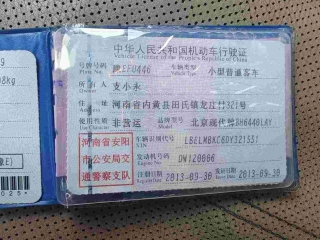 中华人民共和国机动车行驶证
Vehicle License of the People's Republic of China
号牌号码 豫EFU446 车辆类型 小型普通客车
Plate No. Vehicle Type
所有人 支小永
Owner
住址 河南省内黄县田氏镇龙江村321号
Address
使用性质 非营运 品牌型号 北京现代牌BH6440LAY
河南省安阳
市公安局交
通警察支队
车辆识别代号 LBELMBKC6DY321551
VIN
发动机号码 DW120006
Engine No.
注册日期 2013-09-30 发证日期 2013-09-30
Register Date Issue Date